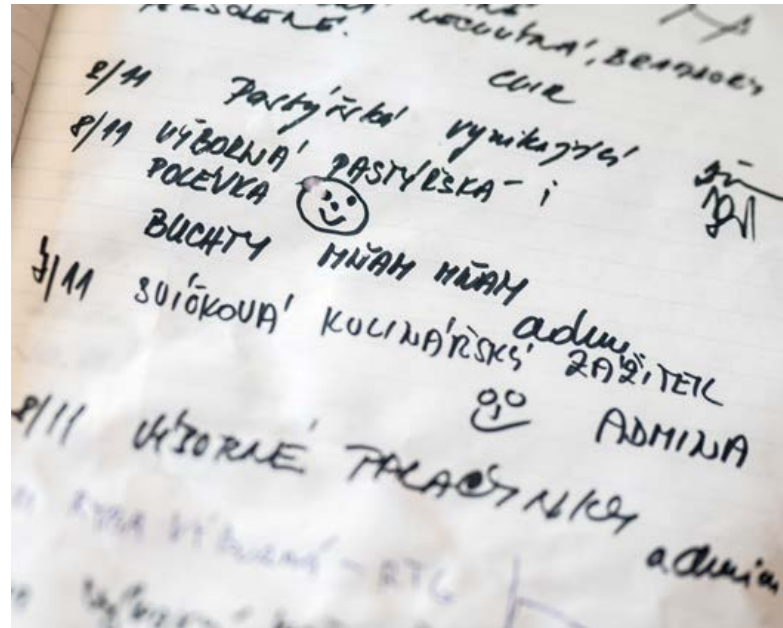 NECHUTNÁ, BRAMBORY
8/11 Pastýřská vynikající
8/11 VÝBORNÁ PASTÝŘSKÁ - i
POLÉVKA
BUCHTY MŇAM MŇAM
admin
/11 SVÍČKOVÁ KULINÁŘSKÝ ZÁŽITEK
ADMINA
8/11 VÝBORNÉ PALAČINKY
admin
RYBA VÝBORNÁ - RTG